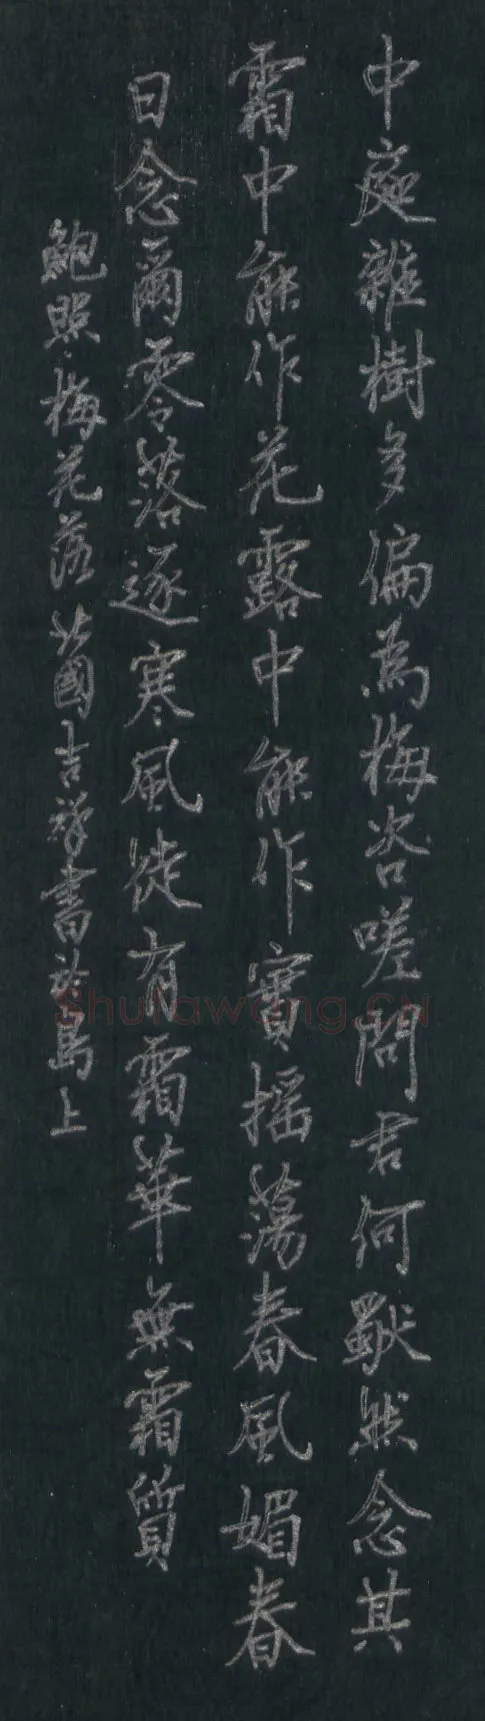 中庭雜樹多偏為梅咨嗟問君何獨然念其
霜中能作花露中能作實摇蕩春風媚春
日念爾零落逐寒風徒有霜華無霜質
鮑照梅花落 茁國吉祥書於島上
Shufawang.CN